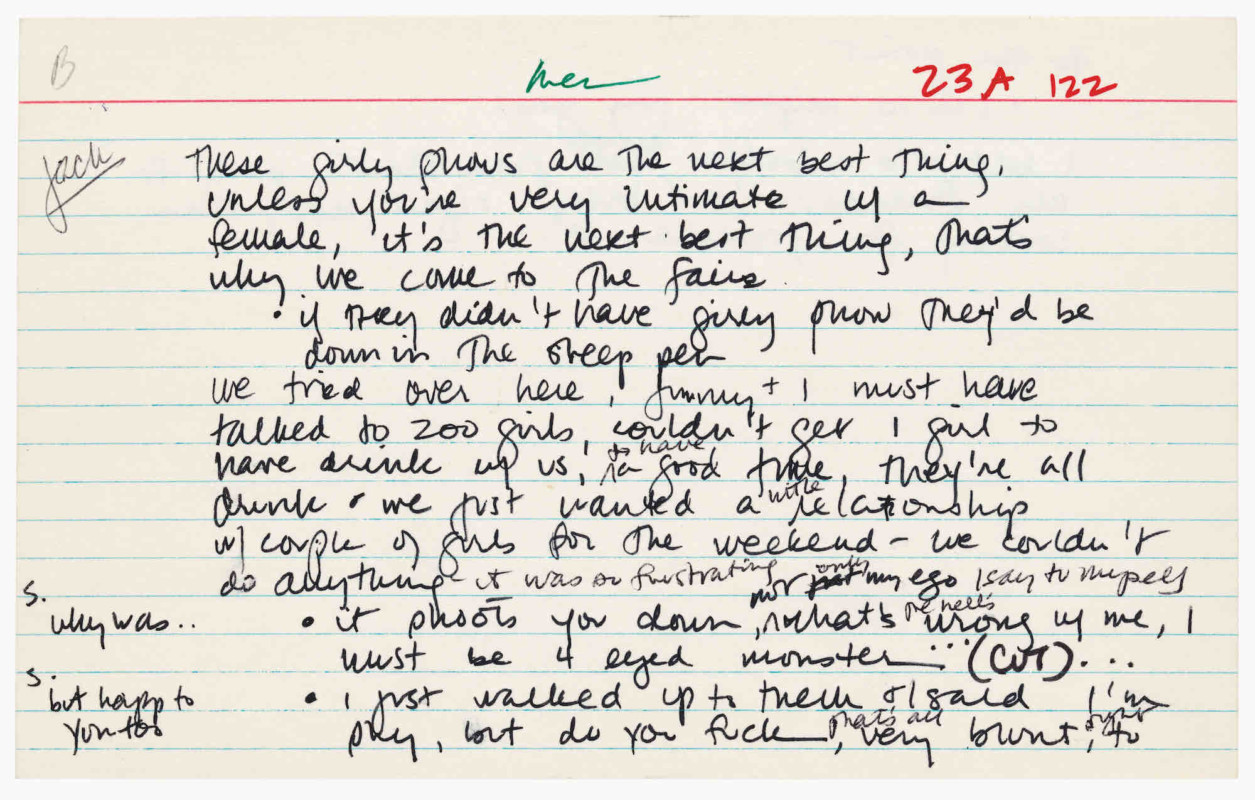 B
men
23A 122
Jack
These girly shows are the next best thing,
unless you're very intimate w/ a
female, it's the next best thing, that's
why we come to the fairs
• if they didn't have girly show they'd be
down in the sheep pen
we tried over here, Jimmy + I must have
talked to 200 girls, couldn't get 1 girl to
to have
have drink w/ us, a good time, they're all
drunk • we just wanted a little relationship
w/ couple of girls for the weekend – we couldn't
do anything – it was so frustrating not just only my ego I say to myself
S.
why was..
• it shoots you down, what's the hell's wrong w/ me, I
must be 4 eyed monster ... (CUT) ...
S.
but happ to
you too
• I just walked up to them & I said I'm
shy, but do you fuck, that's all, very blunt, right, to